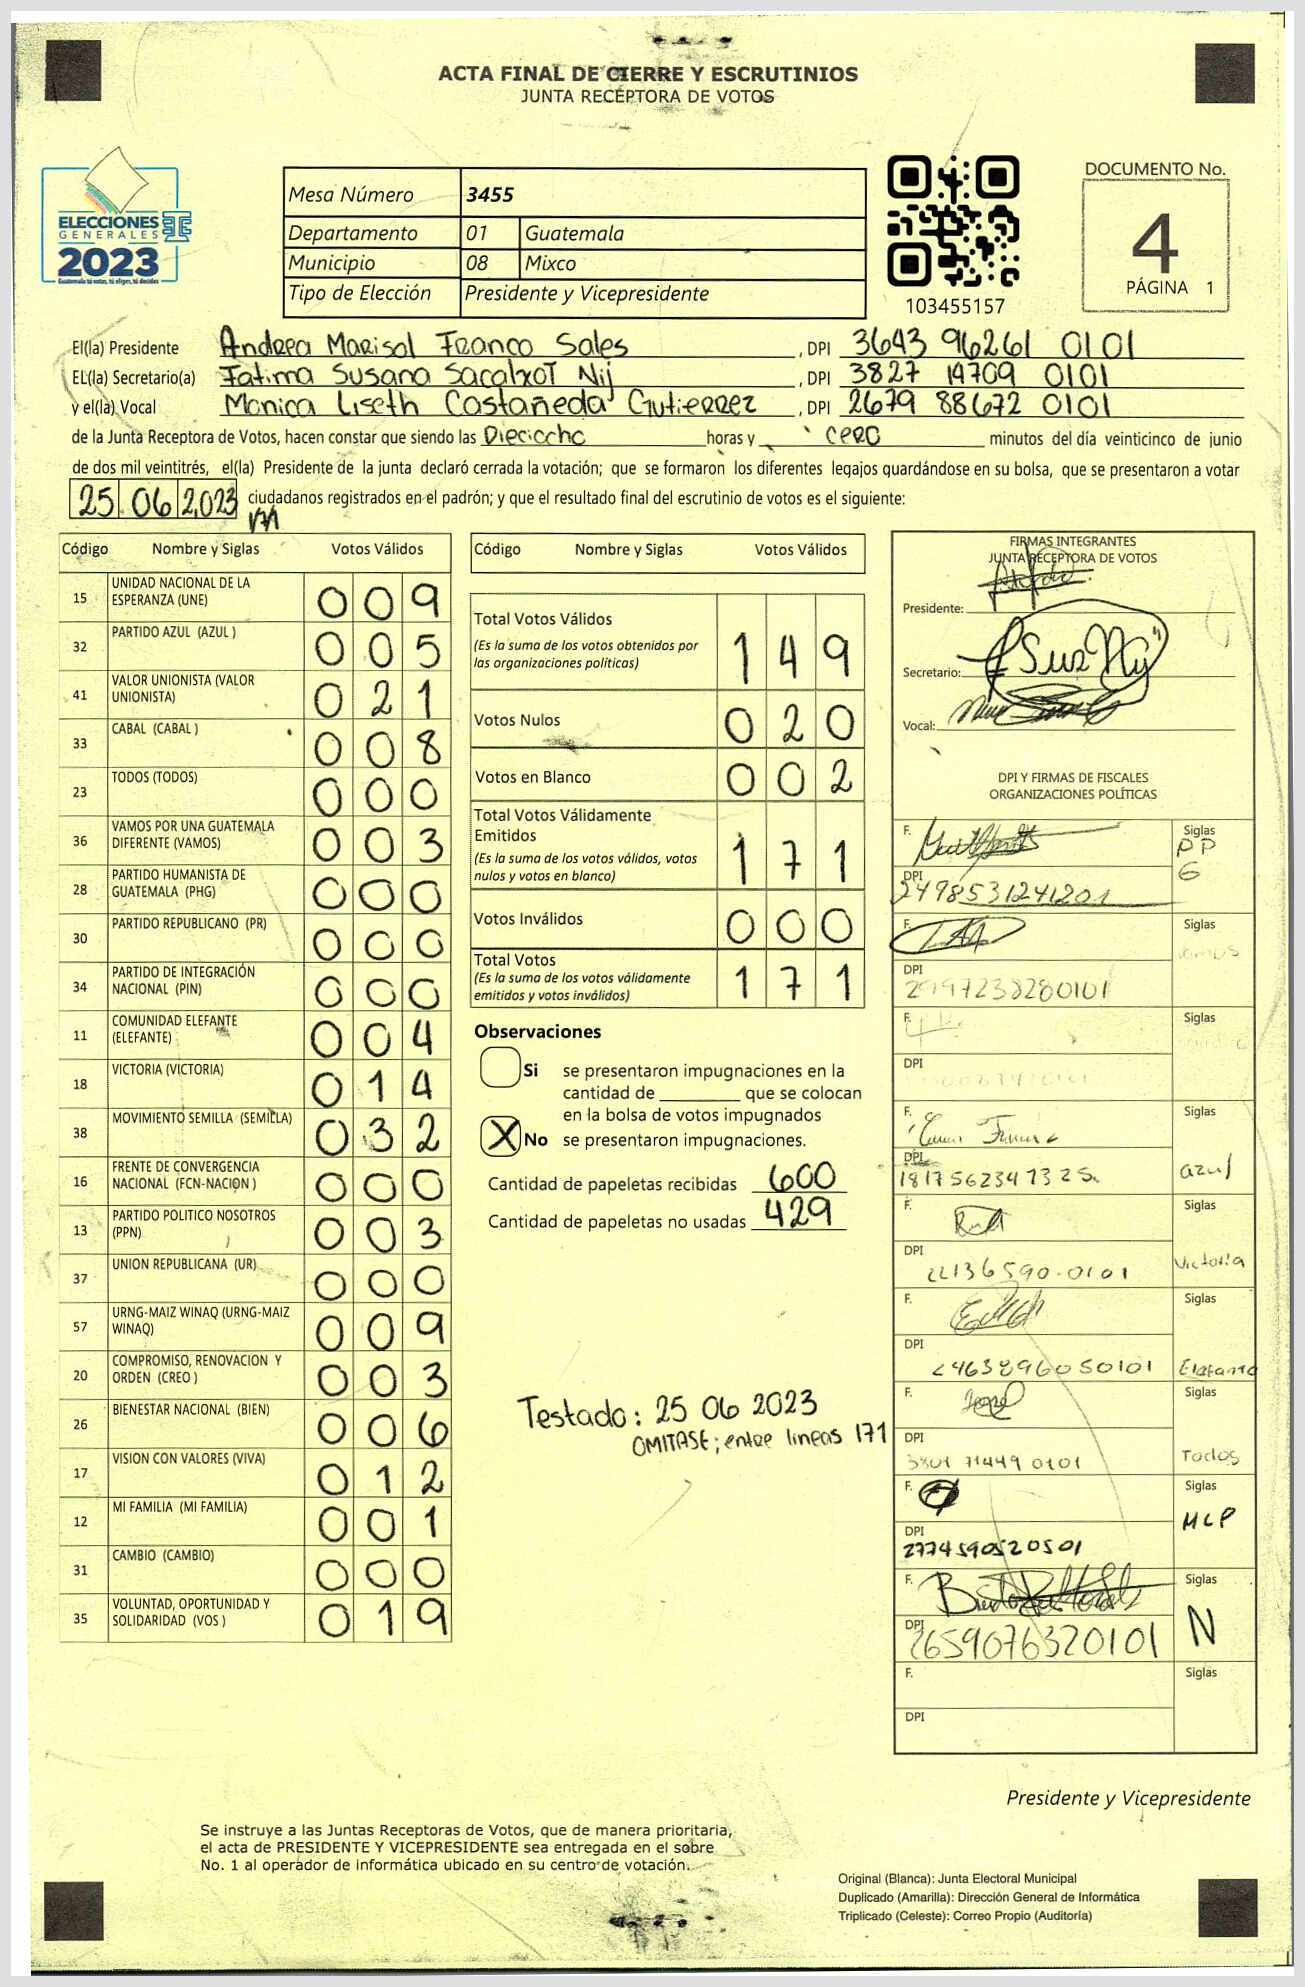 ACTA FINAL DE CIERRE Y ESCRUTINIOS
JUNTA RECEPTORA DE VOTOS
ELECCIONES
GENERALES
2023
Guatemala tú votas, tú eliges, tú decides
Mesa Número 3455
Departamento 01 Guatemala
Municipio 08 Mixco
Tipo de Elección Presidente y Vicepresidente
103455157
DOCUMENTO No.
4
PÁGINA 1
El(la) Presidente Andrea Marisol Franco Sales , DPI 3643 96261 0101
EL(la) Secretario(a) Fatima Susana Sacalxot Nij , DPI 3827 14709 0101
y el(la) Vocal Monica Liseth Castañeda Gutierrez , DPI 2679 88672 0101
de la Junta Receptora de Votos, hacen constar que siendo las Dieciocho horas y cero minutos del día veinticinco de junio
de dos mil veintitrés, el(la) Presidente de la junta declaró cerrada la votación; que se formaron los diferentes legajos guardándose en su bolsa, que se presentaron a votar
25 06 2,023 ciudadanos registrados en el padrón; y que el resultado final del escrutinio de votos es el siguiente:
171
Código Nombre y Siglas Votos Válidos
15 UNIDAD NACIONAL DE LA ESPERANZA (UNE) 0 0 9
32 PARTIDO AZUL (AZUL ) 0 0 5
41 VALOR UNIONISTA (VALOR UNIONISTA) 0 2 1
33 CABAL (CABAL ) 0 0 8
23 TODOS (TODOS) 0 0 0
36 VAMOS POR UNA GUATEMALA DIFERENTE (VAMOS) 0 0 3
28 PARTIDO HUMANISTA DE GUATEMALA (PHG) 0 0 0
30 PARTIDO REPUBLICANO (PR) 0 0 0
34 PARTIDO DE INTEGRACIÓN NACIONAL (PIN) 0 0 0
11 COMUNIDAD ELEFANTE (ELEFANTE) 0 0 4
18 VICTORIA (VICTORIA) 0 1 4
38 MOVIMIENTO SEMILLA (SEMILLA) 0 3 2
16 FRENTE DE CONVERGENCIA NACIONAL (FCN-NACION ) 0 0 0
13 PARTIDO POLITICO NOSOTROS (PPN) 0 0 3
37 UNION REPUBLICANA (UR) 0 0 0
57 URNG-MAIZ WINAQ (URNG-MAIZ WINAQ) 0 0 9
20 COMPROMISO, RENOVACION Y ORDEN (CREO ) 0 0 3
26 BIENESTAR NACIONAL (BIEN) 0 0 6
17 VISION CON VALORES (VIVA) 0 1 2
12 MI FAMILIA (MI FAMILIA) 0 0 1
31 CAMBIO (CAMBIO) 0 0 0
35 VOLUNTAD, OPORTUNIDAD Y SOLIDARIDAD (VOS ) 0 1 9
Código Nombre y Siglas Votos Válidos
Total Votos Válidos 1 4 9
(Es la suma de los votos obtenidos por
las organizaciones políticas)
Votos Nulos 0 2 0
Votos en Blanco 0 0 2
Total Votos Válidamente
Emitidos 1 7 1
(Es la suma de los votos válidos, votos
nulos y votos en blanco)
Votos Inválidos 0 0 0
Total Votos 1 7 1
(Es la suma de los votos válidamente
emitidos y votos inválidos)
Observaciones
Si se presentaron impugnaciones en la
cantidad de ________ que se colocan
en la bolsa de votos impugnados
X No se presentaron impugnaciones.
Cantidad de papeletas recibidas 600
Cantidad de papeletas no usadas 429
Testado: 25 06 2023
OMITASE; entre lineas 171
FIRMAS INTEGRANTES
JUNTA RECEPTORA DE VOTOS
Presidente:
Secretario:
Vocal:
DPI Y FIRMAS DE FISCALES
ORGANIZACIONES POLÍTICAS
F. Siglas PPG
DPI 2498531241201
F. Siglas
DPI 2997238280101
F. Siglas
DPI
F. Siglas azul
DPI 1817562347325
F. Siglas Victoria
DPI 22136590-0101
F. Siglas Elefante
DPI 2463896050101
F. Siglas Todos
DPI 3801 71449 0101
F. Siglas MLP
DPI 2774590520501
F. Siglas N
DPI 2659076320101
F. Siglas
DPI
Presidente y Vicepresidente
Se instruye a las Juntas Receptoras de Votos, que de manera prioritaria,
el acta de PRESIDENTE Y VICEPRESIDENTE sea entregada en el sobre
No. 1 al operador de informática ubicado en su centro de votación.
Original (Blanca): Junta Electoral Municipal
Duplicado (Amarilla): Dirección General de Informática
Triplicado (Celeste): Correo Propio (Auditoría)